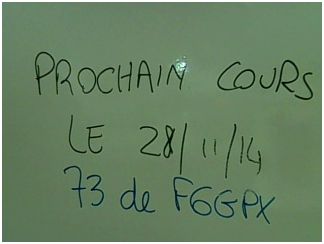 PROCHAIN COURS
LE 28/11/14
73 de F6GPX